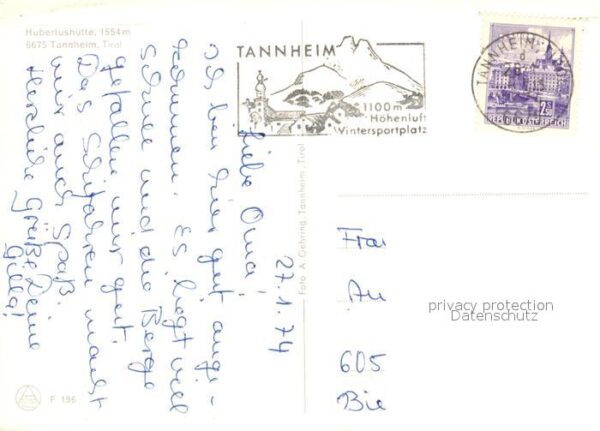 Hubertushütte, 1554m
6675 Tannheim, Tirol
TANNHEIM
1100m
Höhenluft
Wintersportplatz
TANNHEIM
2.50
REPUBLIK ÖSTERREICH
27.1.74
Liebe Oma!
Ich bin hier gut ange-
kommen. Es liegt viel
Schnee und die Berge
gefallen mir gut.
Das Schifahren macht
mir auch Spaß.
Herzliche Grüße Deine
Gilla!
Foto A. Gehring, Tannheim, Tirol
Frau
An
605
Bie
privacy protection
Datenschutz
F 196